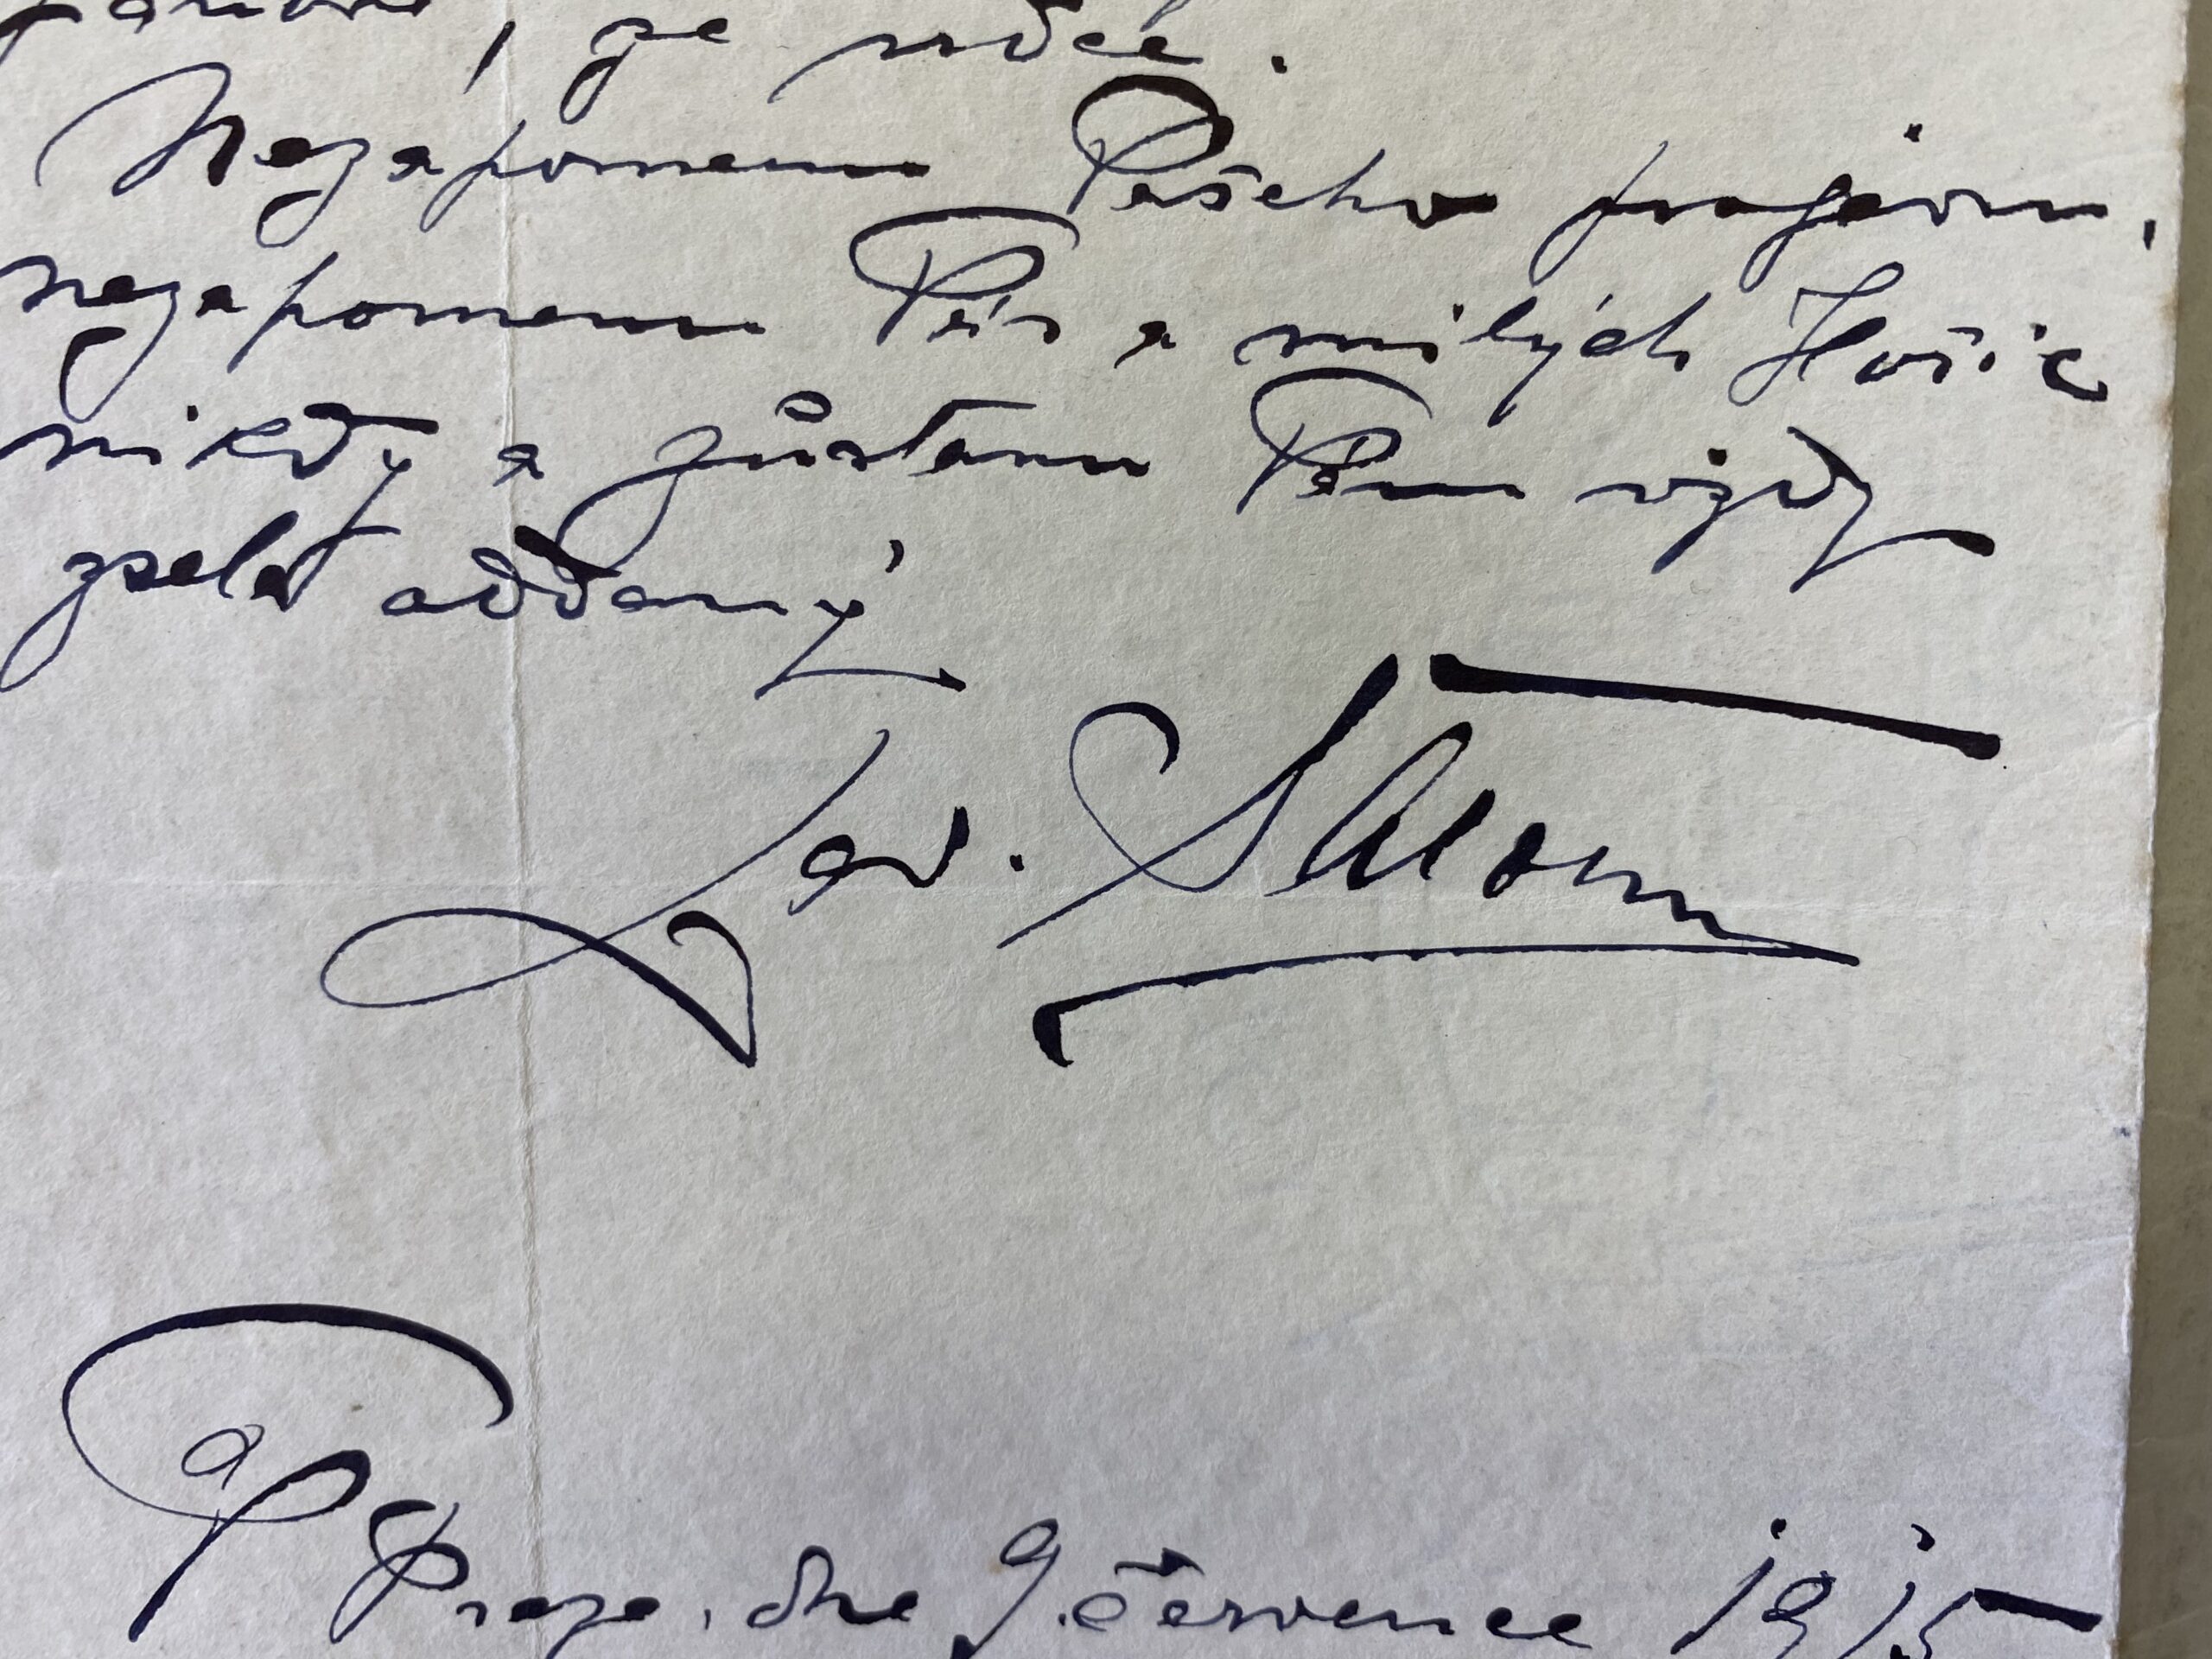 , ze srdce.
Nezapomenu Vašeho projevu,
nezapomenu Vás a milých Hořic
nikdy a zůstanu Vám vždy
zcela oddaný
V Praze, dne 9. července 1915